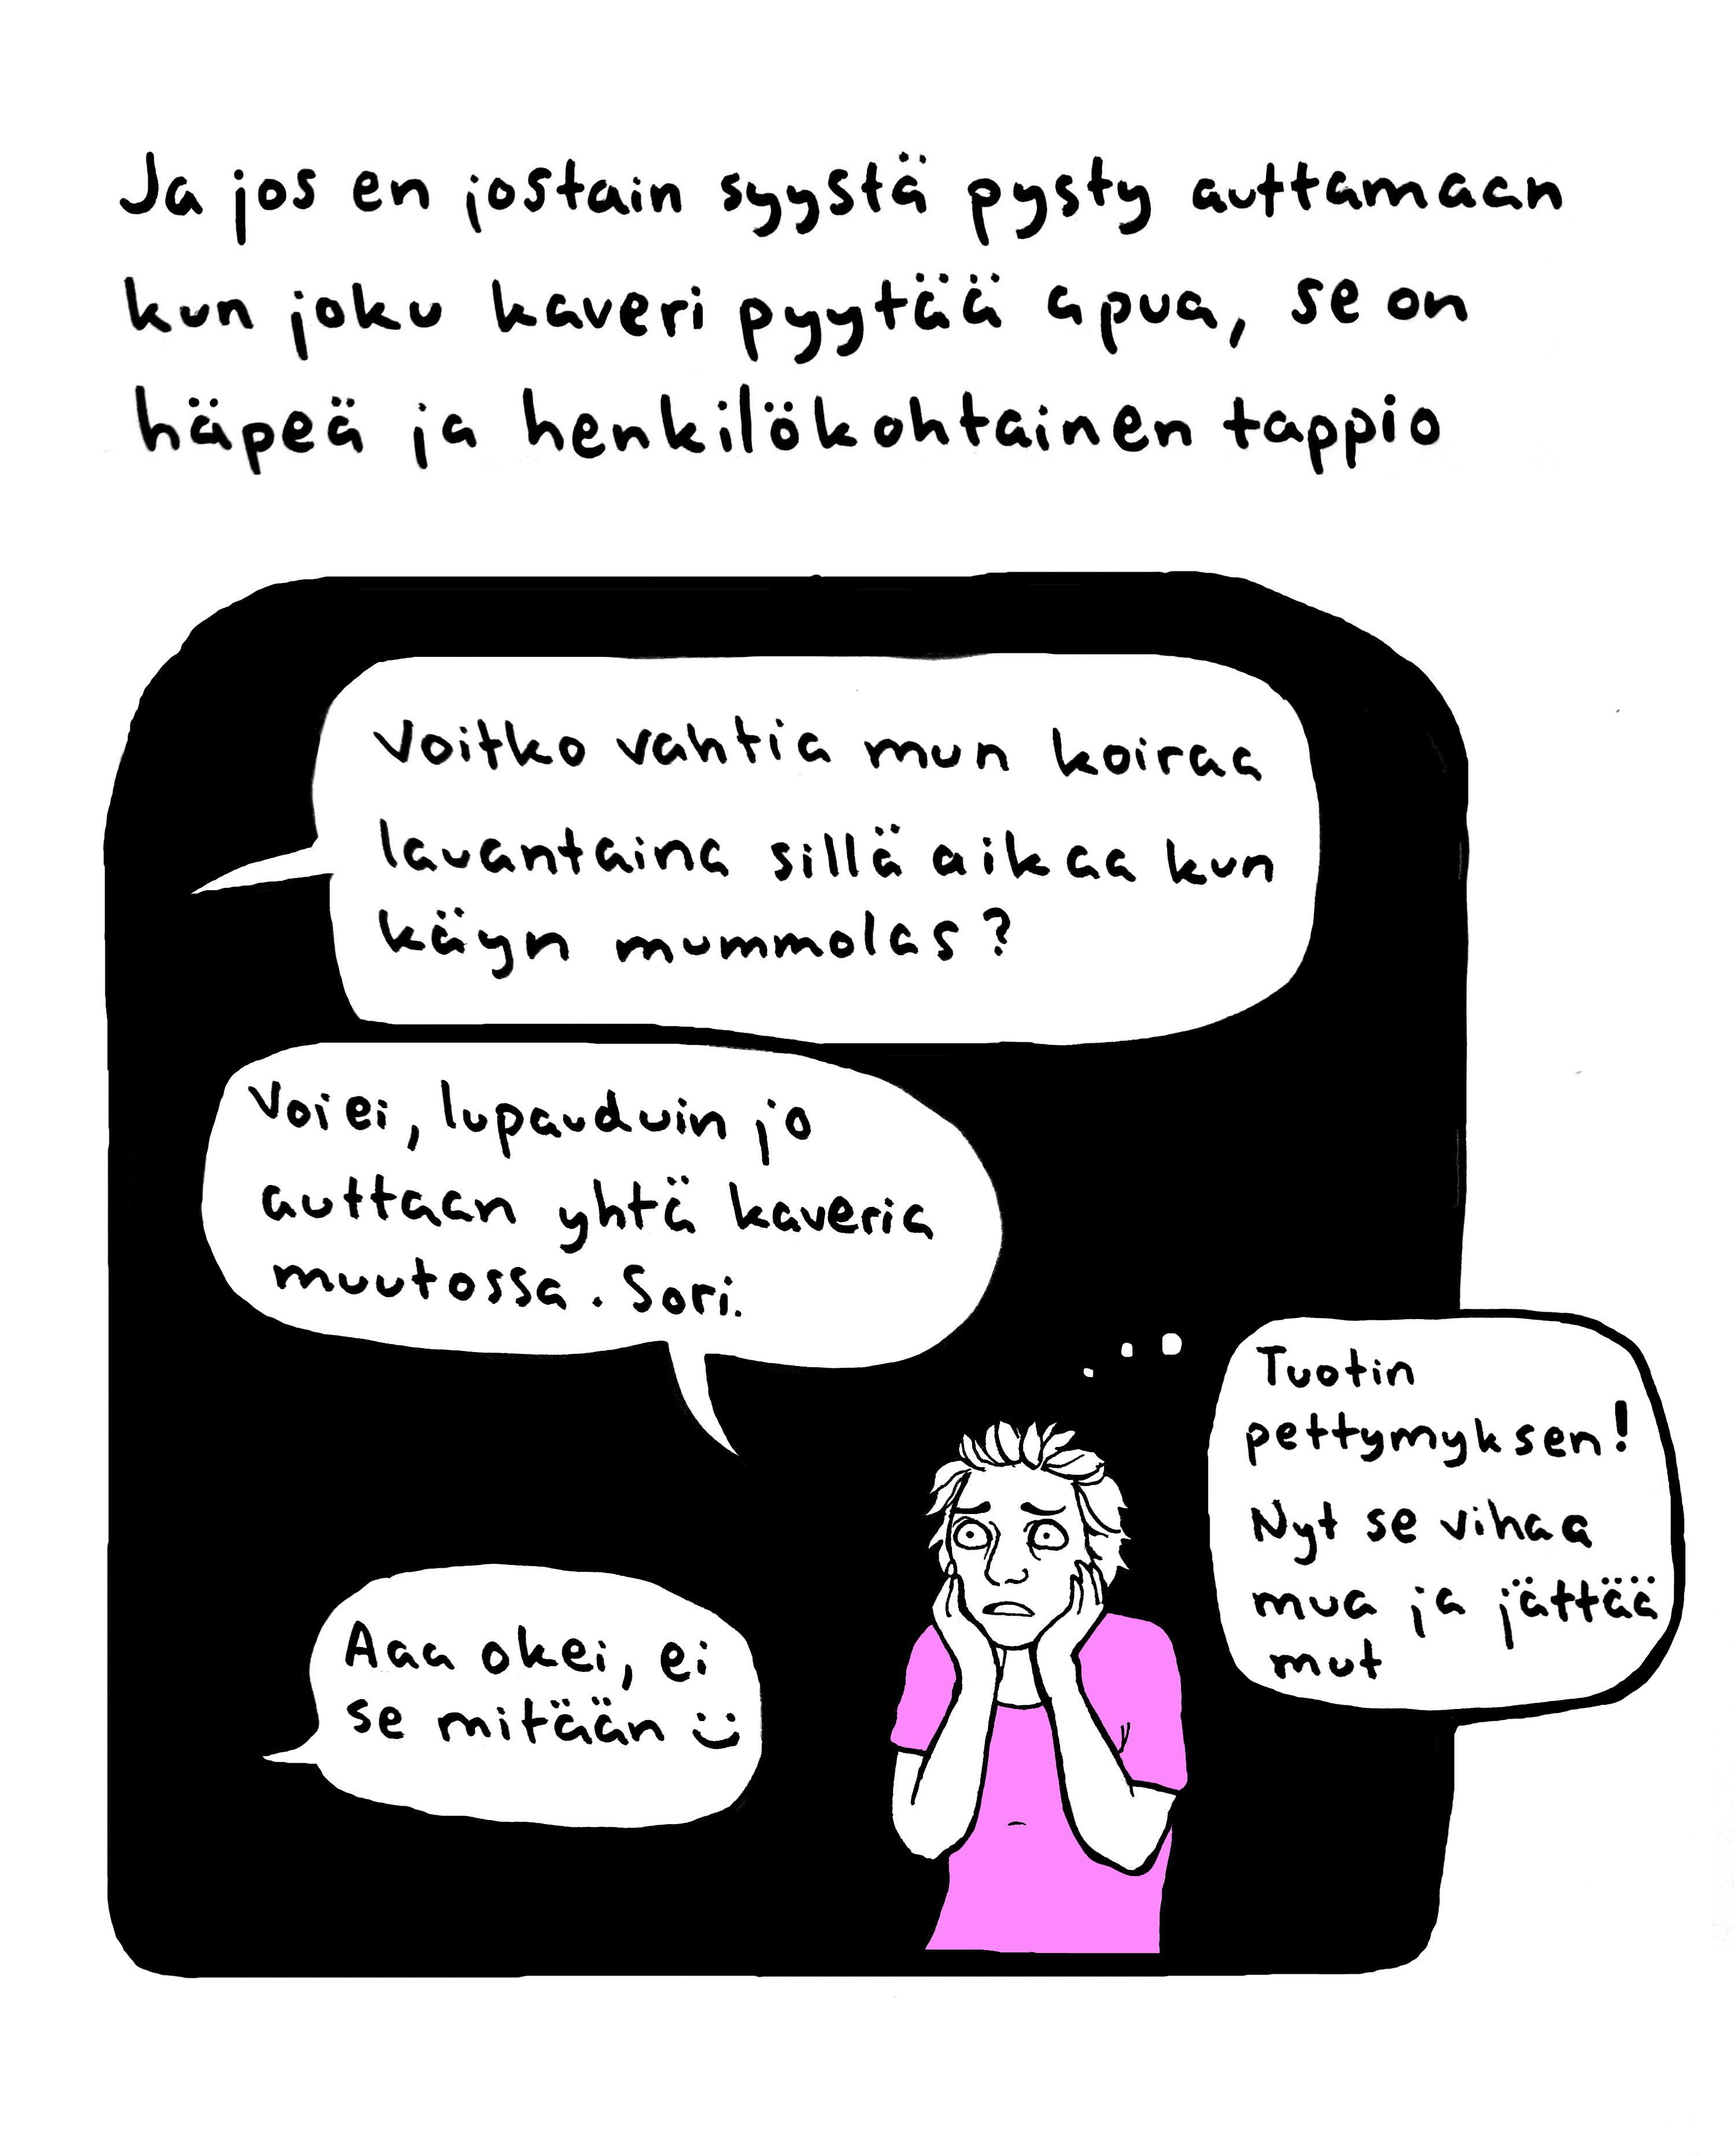 Ja jos en jostain syystä pysty auttamaan
kun joku kaveri pyytää apua, se on
häpeä ja henkilökohtainen tappio
Voitko vahtia mun koiraa
lauantaina sillä aikaa kun
käyn mummolas?
Voi ei, lupauduin jo
auttaan yhtä kaveria
muutossa. Sori.
Tuotin
pettymyksen!
Nyt se vihaa
mua ja jättää
mut
Aaa okei, ei
se mitään :)